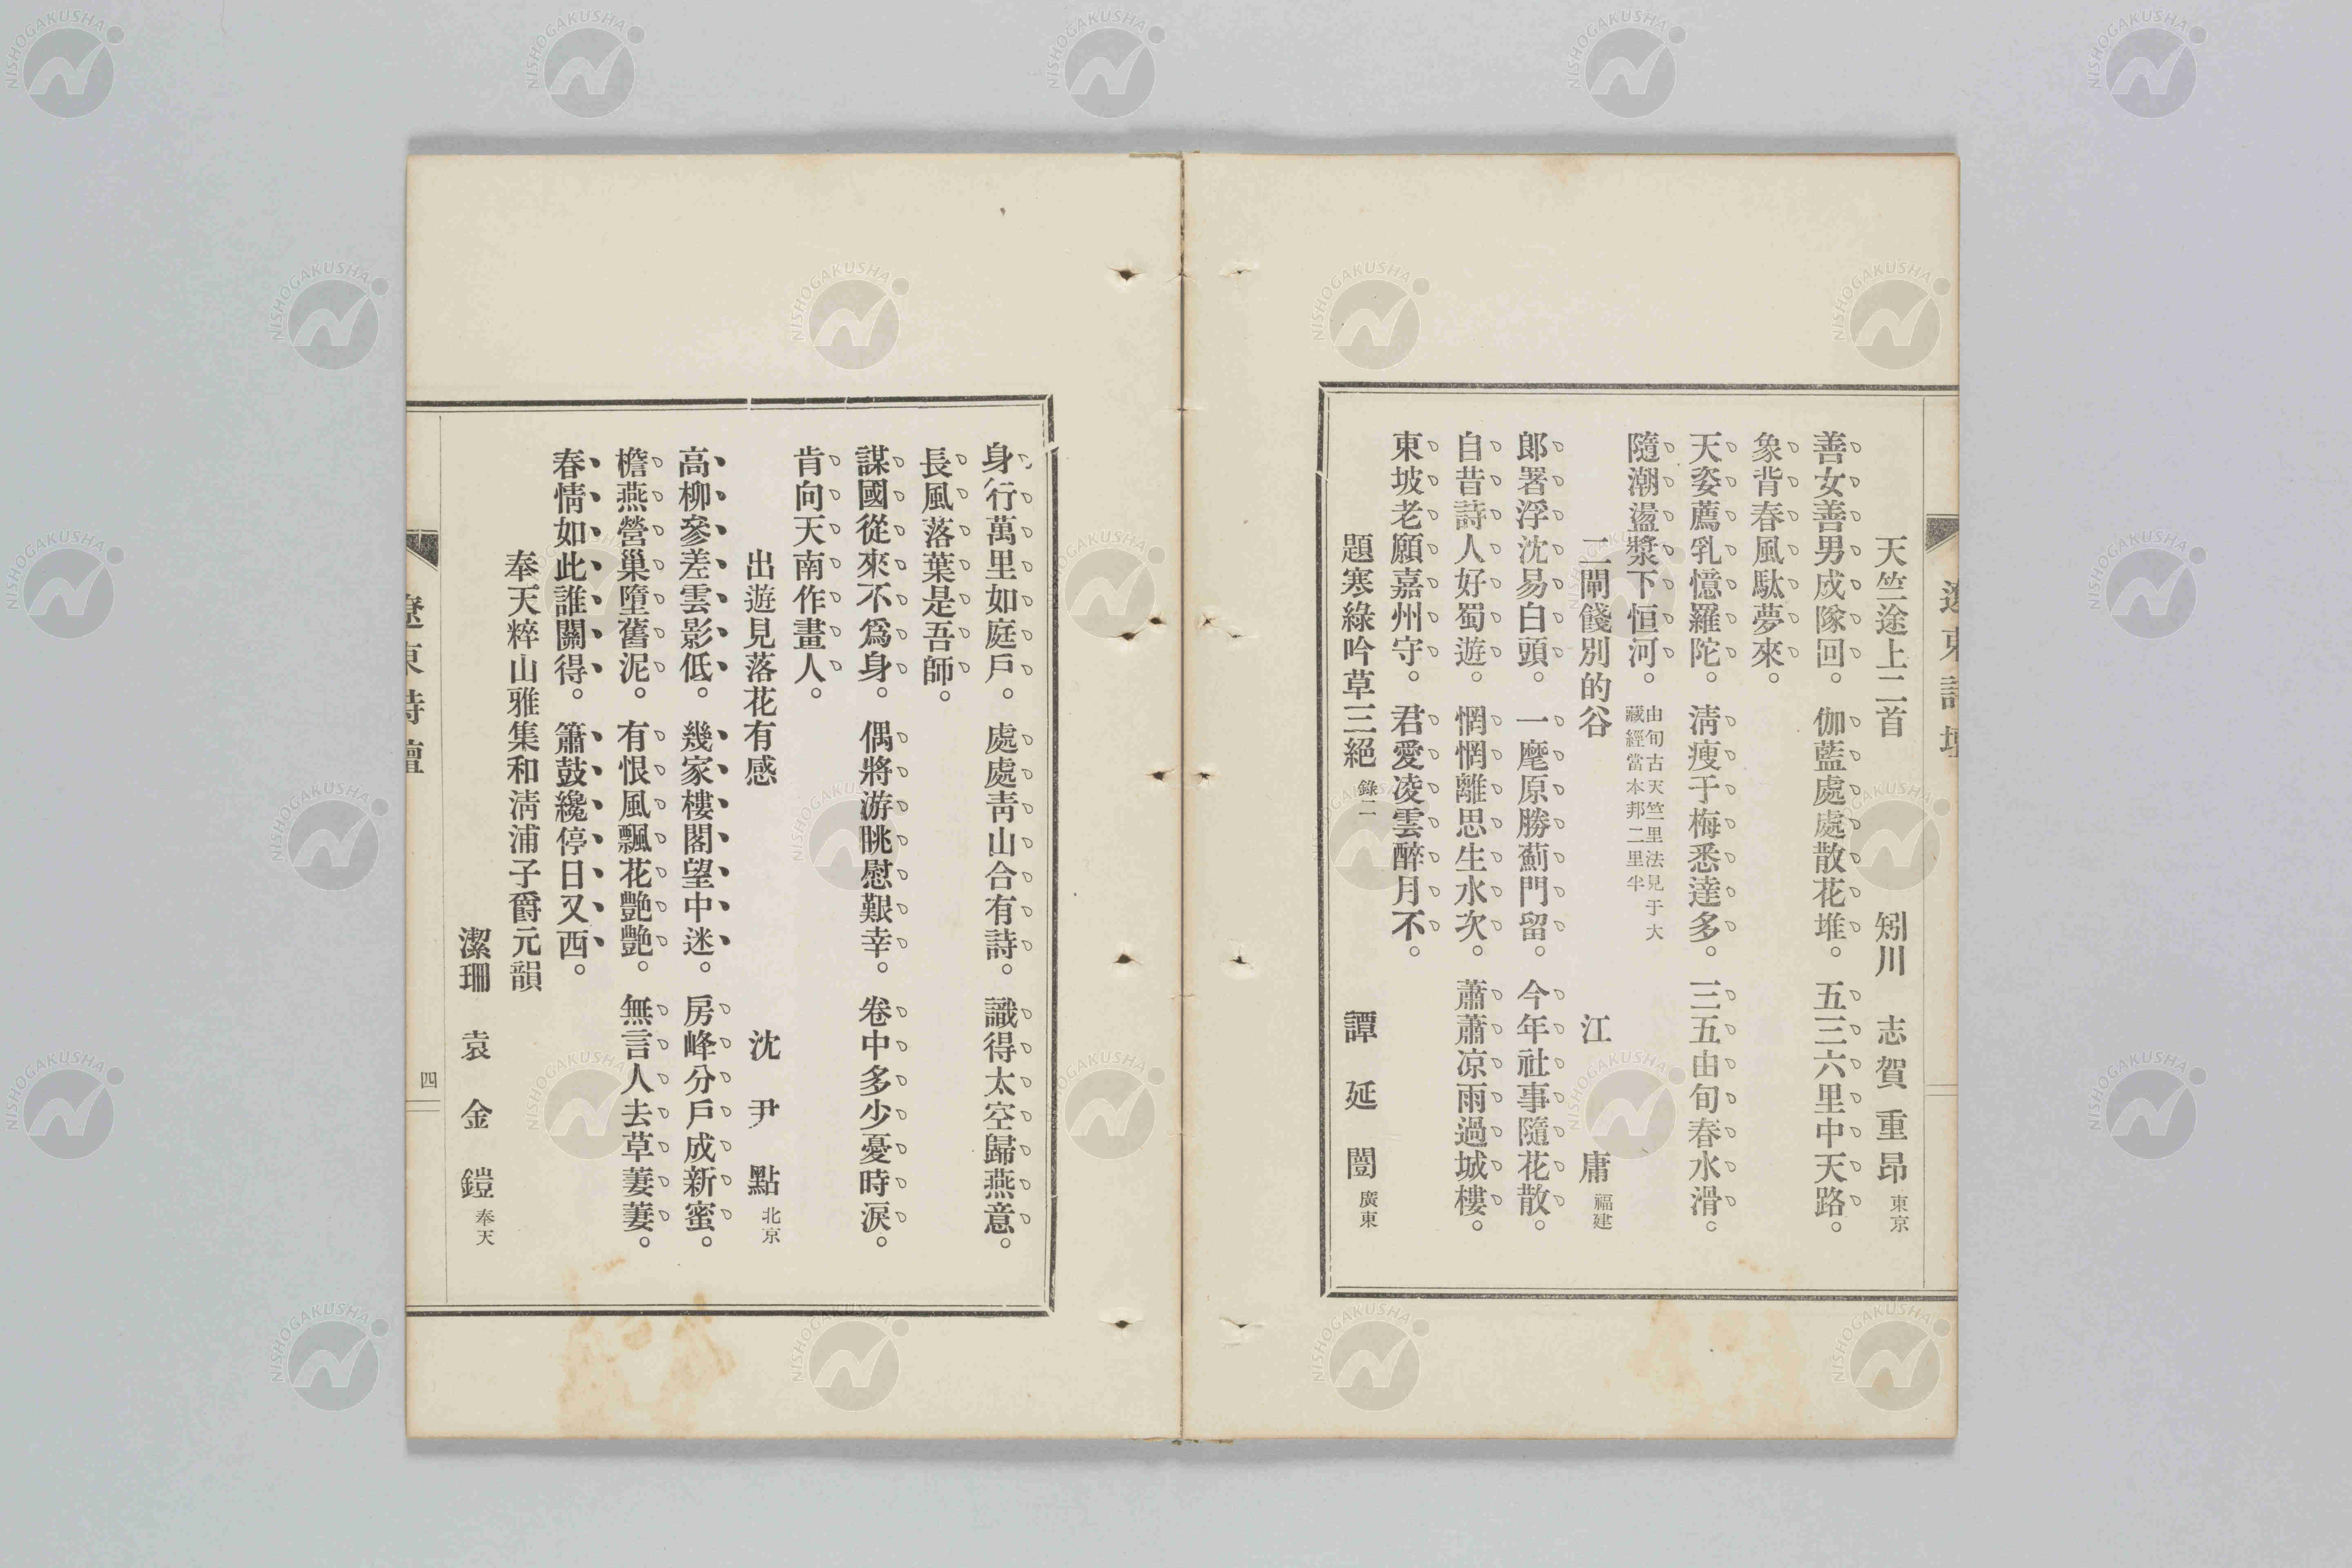 遼東詩壇
天竺途上二首　矧川　志賀重昂 東京
善女善男成隊回。伽藍處處散花堆。五三六里中天路。
象背春風馱夢來。
天姿薦乳憶羅陀。淸瘦于梅悉達多。三五由旬春水滑。
隨潮盪槳下恒河。由旬古天竺里法見于大
藏經當本邦二里半
二閘餞別的谷　江庸 福建
郞署浮沈易白頭。一麾原勝薊門留。今年社事隨花散。
自昔詩人好蜀遊。惘惘離思生水次。蕭蕭凉雨過城樓。
東坡老願嘉州守。君愛凌雲醉月不。
題寒綠吟草三絕 錄二　譚延闓 廣東
身行萬里如庭戶。處處靑山合有詩。識得太空歸燕意。
長風落葉是吾師。
謀國從來不爲身。偶將游眺慰艱幸。卷中多少憂時淚。
肯向天南作畫人。
出遊見落花有感　沈尹點 北京
高柳參差雲影低。幾家樓閣望中迷。房峰分戶成新蜜。
檐燕營巢墮舊泥。有恨風飄花艷艷。無言人去草萋萋。
春情如此誰關得。簫鼓纔停日又西。
奉天粹山雅集和淸浦子爵元韻
潔珊　袁金鎧 奉天
遼東詩壇
四
NISHOGAKUSHA